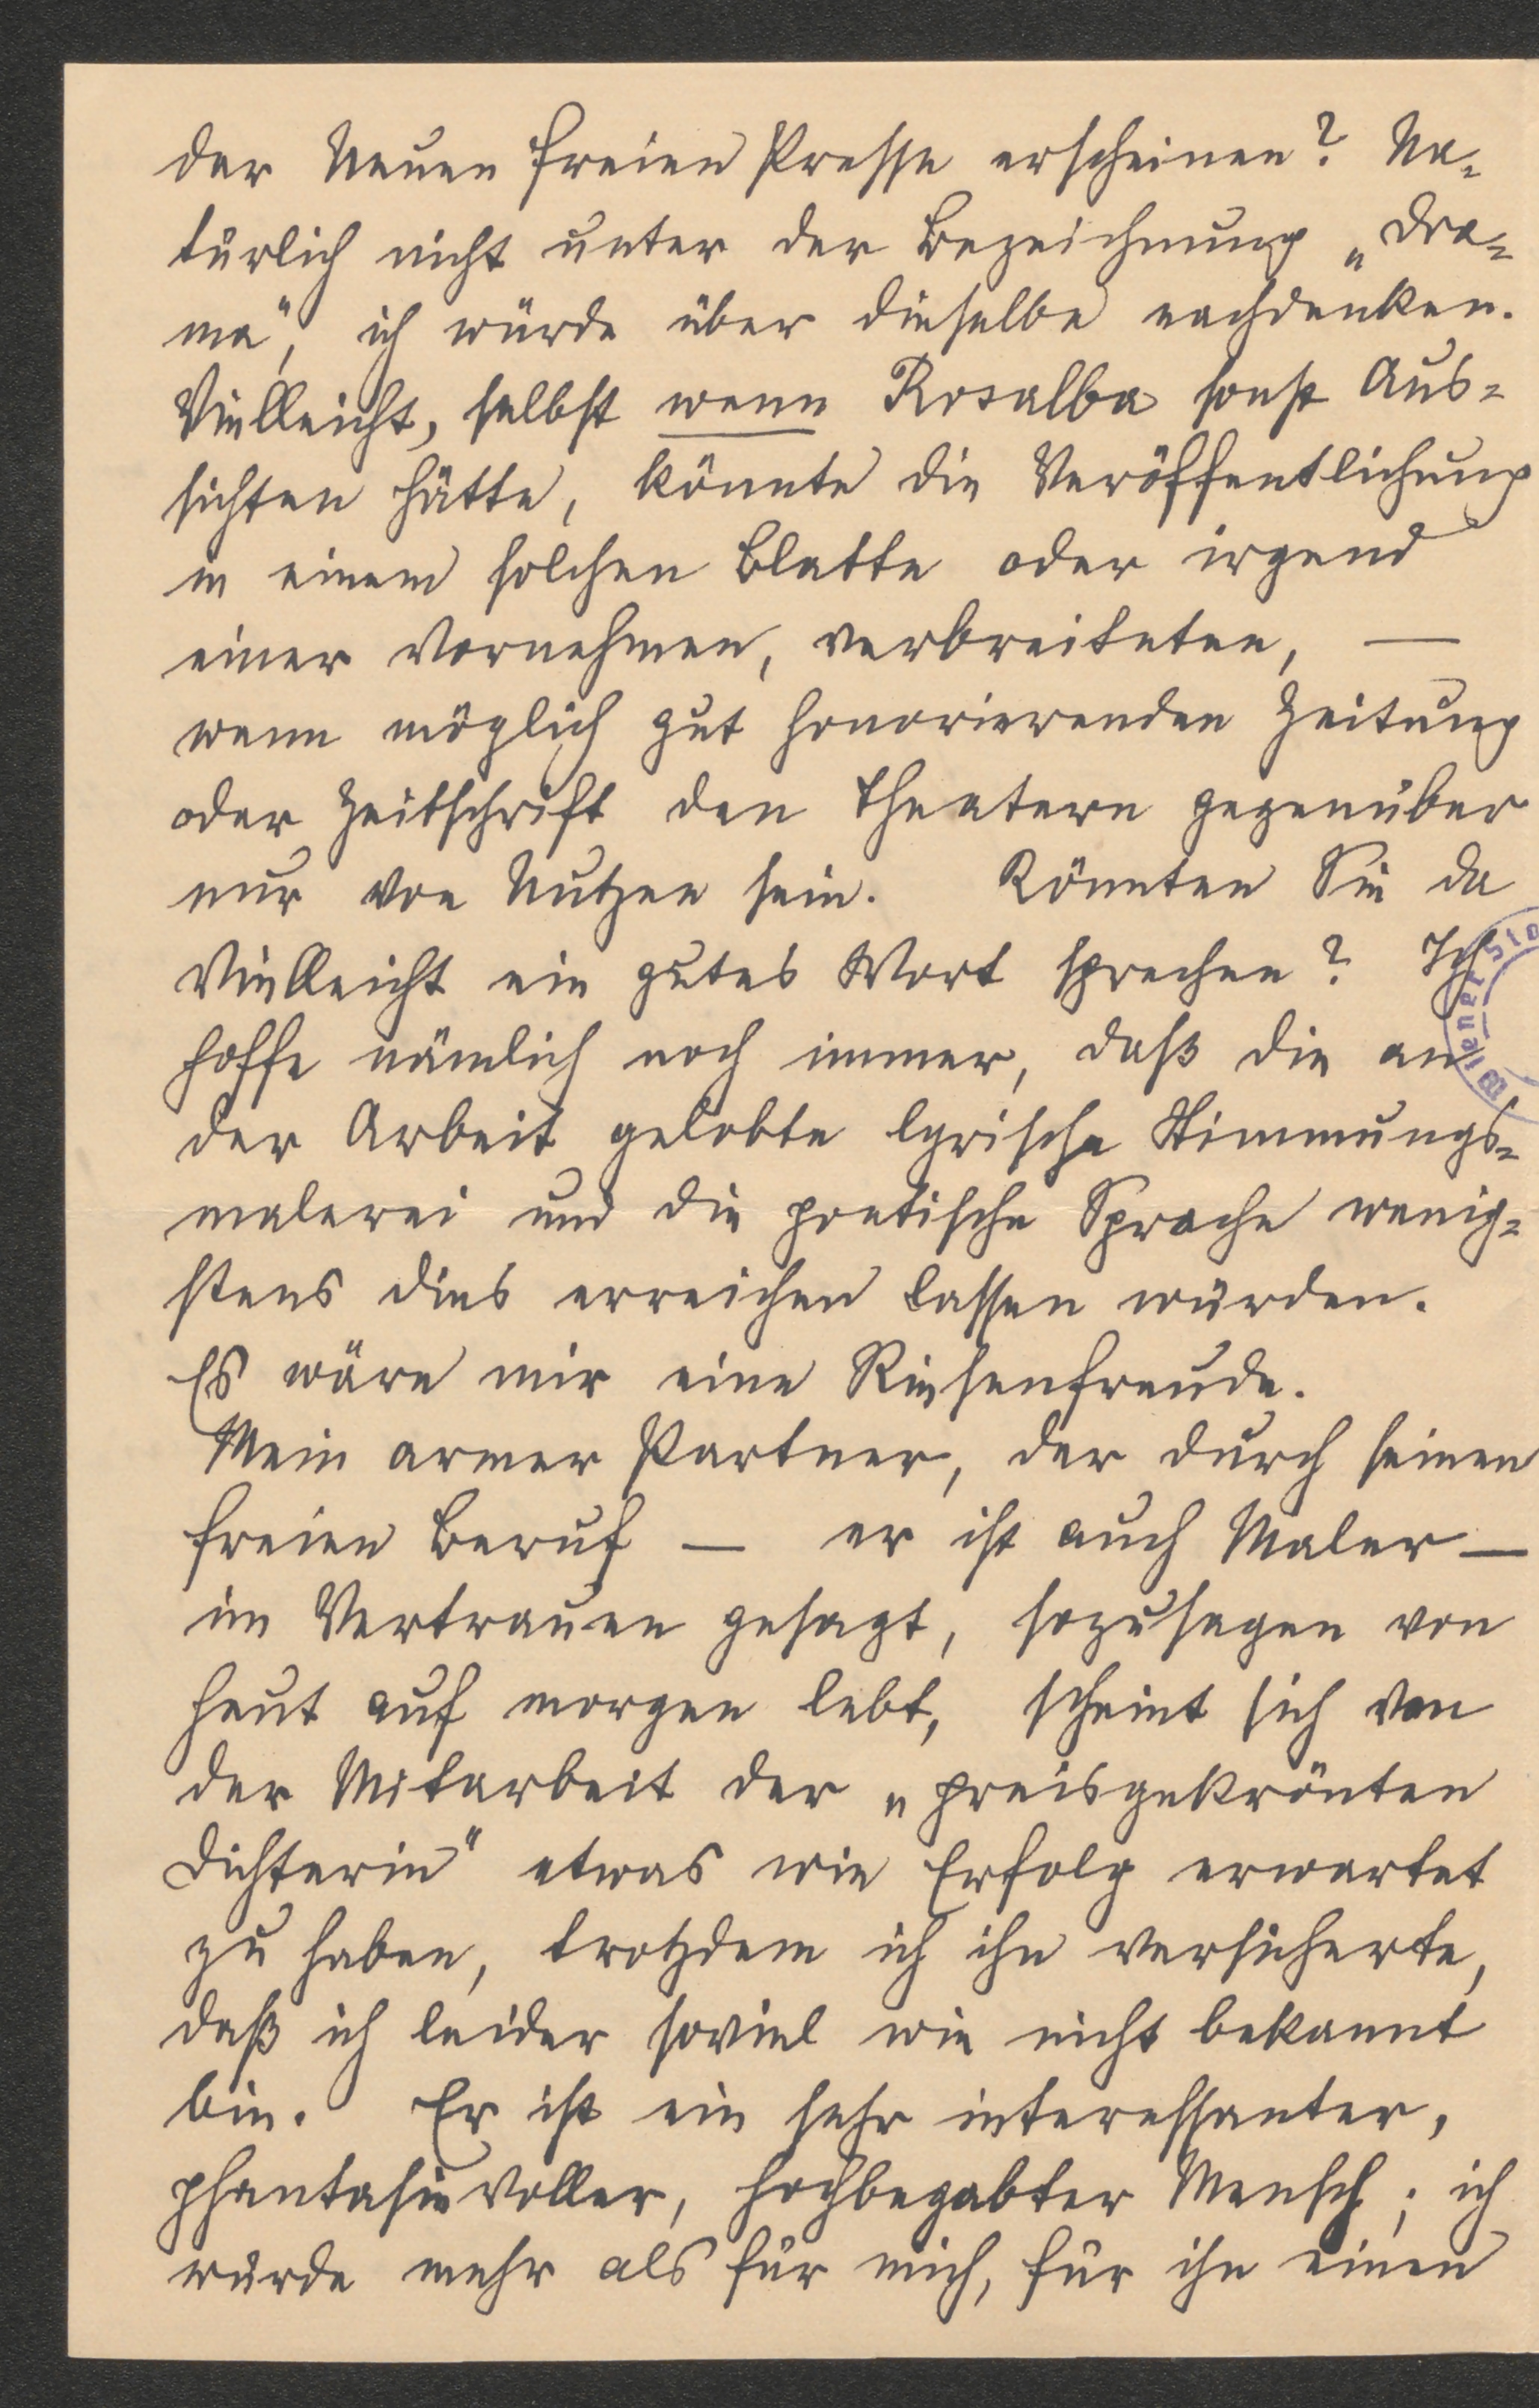 der Neuen freien Presse erscheinen? Na-
türlich nicht unter der Bezeichnung „Dra-
ma“, ich würde über dieselbe nachdenken.
Vielleicht, selbst wenn Rosalba sonst Aus-
sichten hätte, könnte die Veröffentlichung
in einem solchen Blatte oder irgend
einer vornehmen, verbreiteten, —
wenn möglich gut honorierenden Zeitung
oder Zeitschrift den Theatern gegenüber
nur von Nutzen sein. Könnten Sie da
vielleicht ein gutes Wort sprechen? Ich
hoffe nämlich noch immer, daß die an
der Arbeit gelobte lyrische Stimmungs-
malerei und die poetische Sprache wenig-
stens dies erreichen lassen würden.
Es wäre mir eine Riesenfreude.
Mein armer Partner, der durch seinen
freien Beruf — er ist auch Maler —
im Vertrauen gesagt, sozusagen von
heut auf morgen lebt, scheint sich von
der Mitarbeit der „preisgekrönten
Dichterin“ etwas wie Erfolg erwartet
zu haben, trotzdem ich ihn versicherte,
daß ich leider soviel wie nicht bekannt
bin. Er ist ein sehr interessanter,
phantasievoller, hochbegabter Mensch; ich
würde mehr als für mich, für ihn einen
Wiener Sta